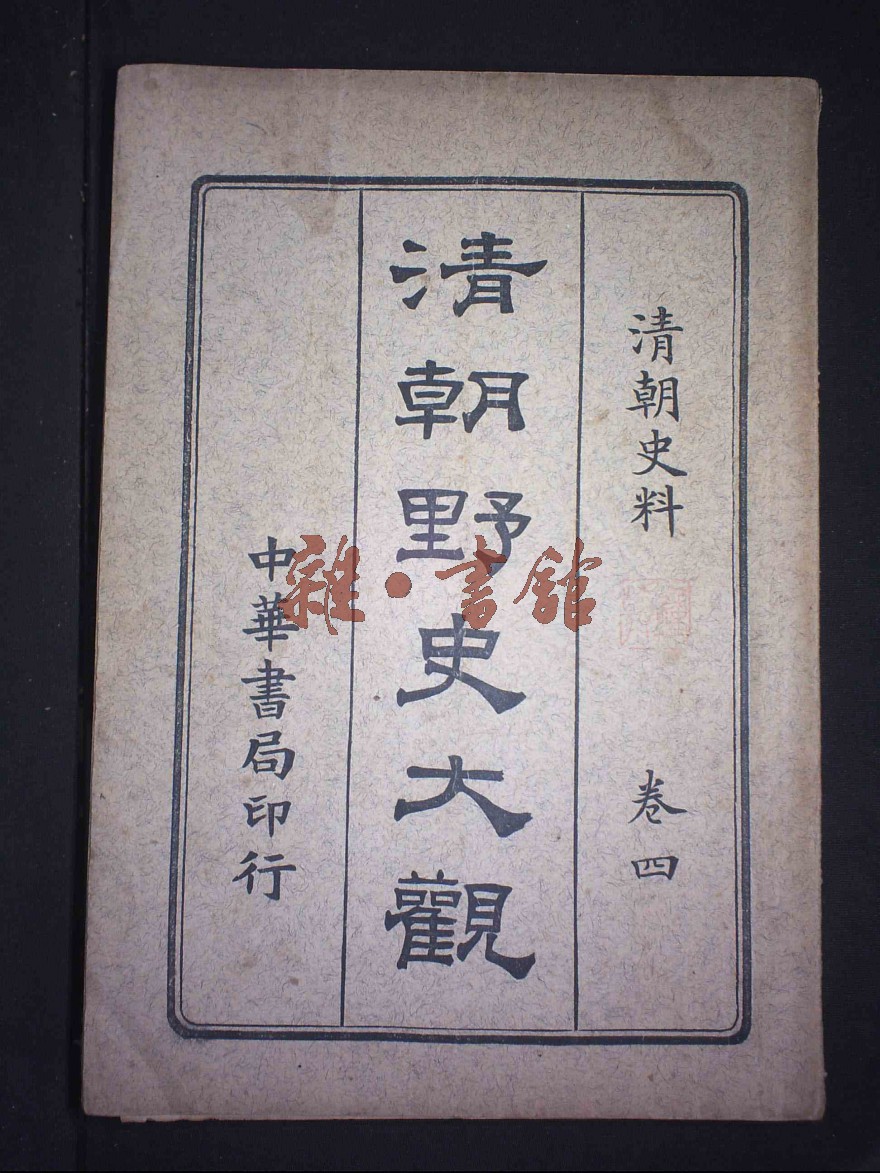 清朝史料 卷四
清朝野史大觀
中華書局印行
雜·書館